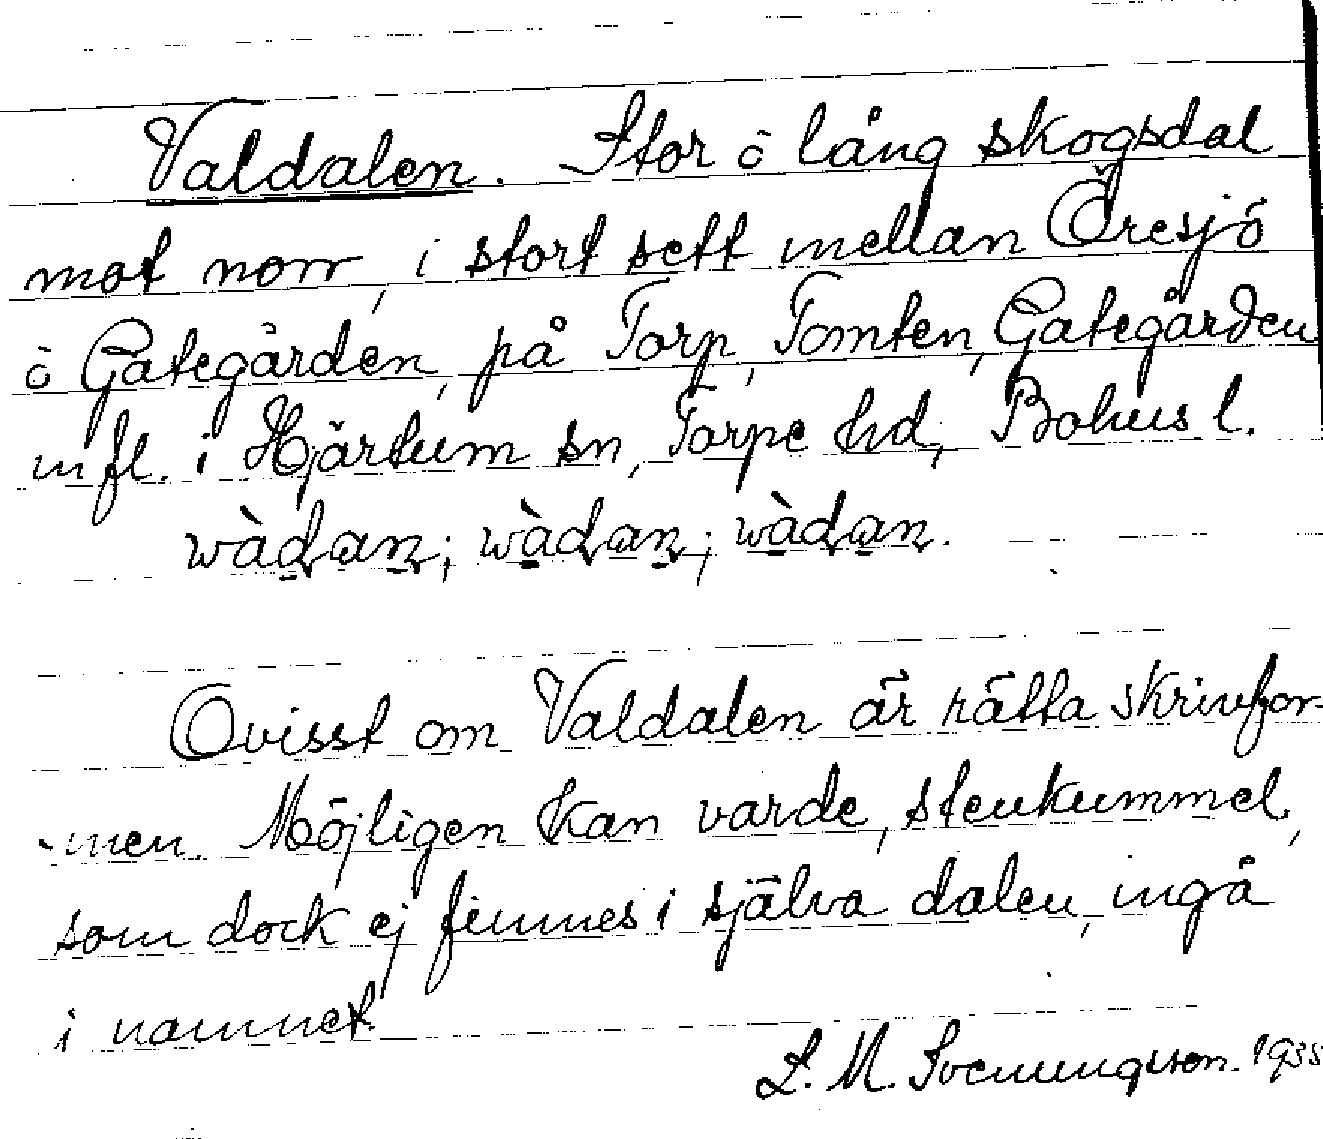 Valdalen. Stor ō lång skogsdal
mot norr, i stort sett mellan Öresjö
ō Gategården, på Torp, Tomten, Gategården
m fl. i Hjärtum sn, Torpe hd, Bohus l.
wàdan; wàdan; wàdan.
Ovisst om Valdalen är rätta skrivfor-
-men. Möjligen kan varde, stenkummel,
som dock ej finnes i själva dalen, ingå
i namnet.
L. M. Svenungsson. 1935